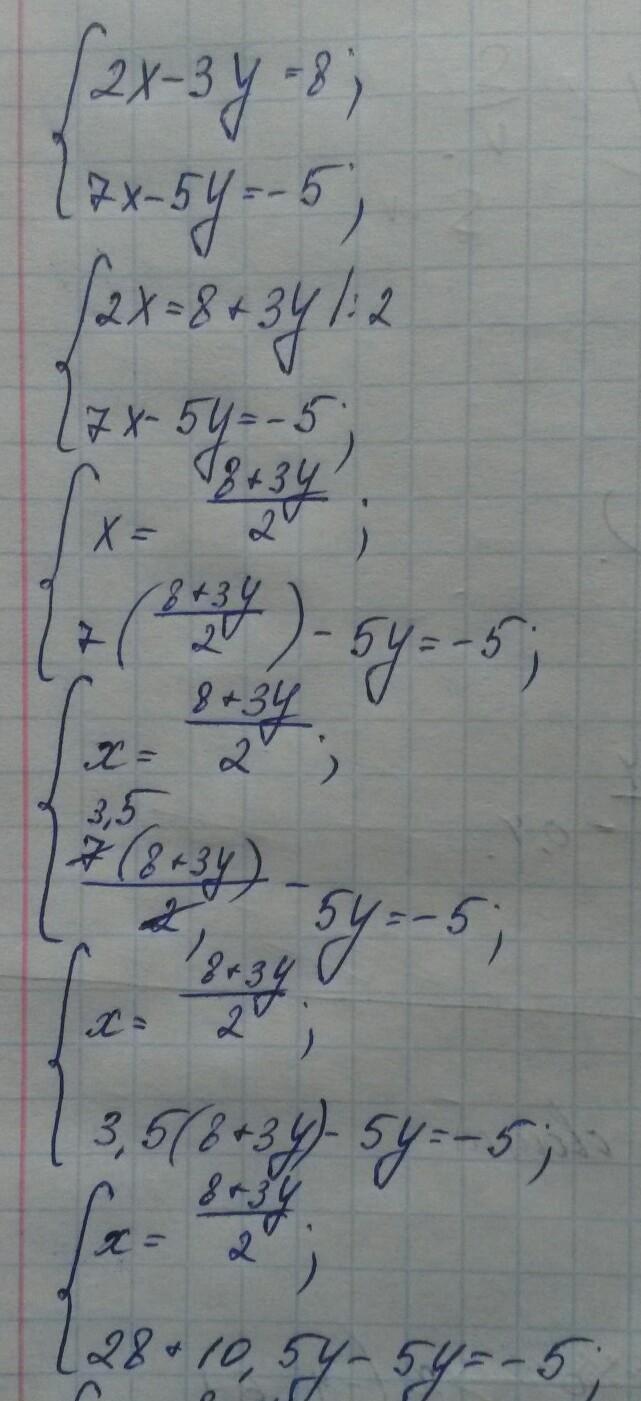 2x-3y=8;
7x-5y=-5;
2x=8+3y |:2
7x-5y=-5;
x= (8+3y)/2;
7((8+3y)/2)-5y=-5;
x= (8+3y)/2;
3,5
7(8+3y)/2, - 5y=-5;
x= (8+3y)/2;
3,5(8+3y)-5y=-5;
x= (8+3y)/2;
28+10,5y-5y=-5;